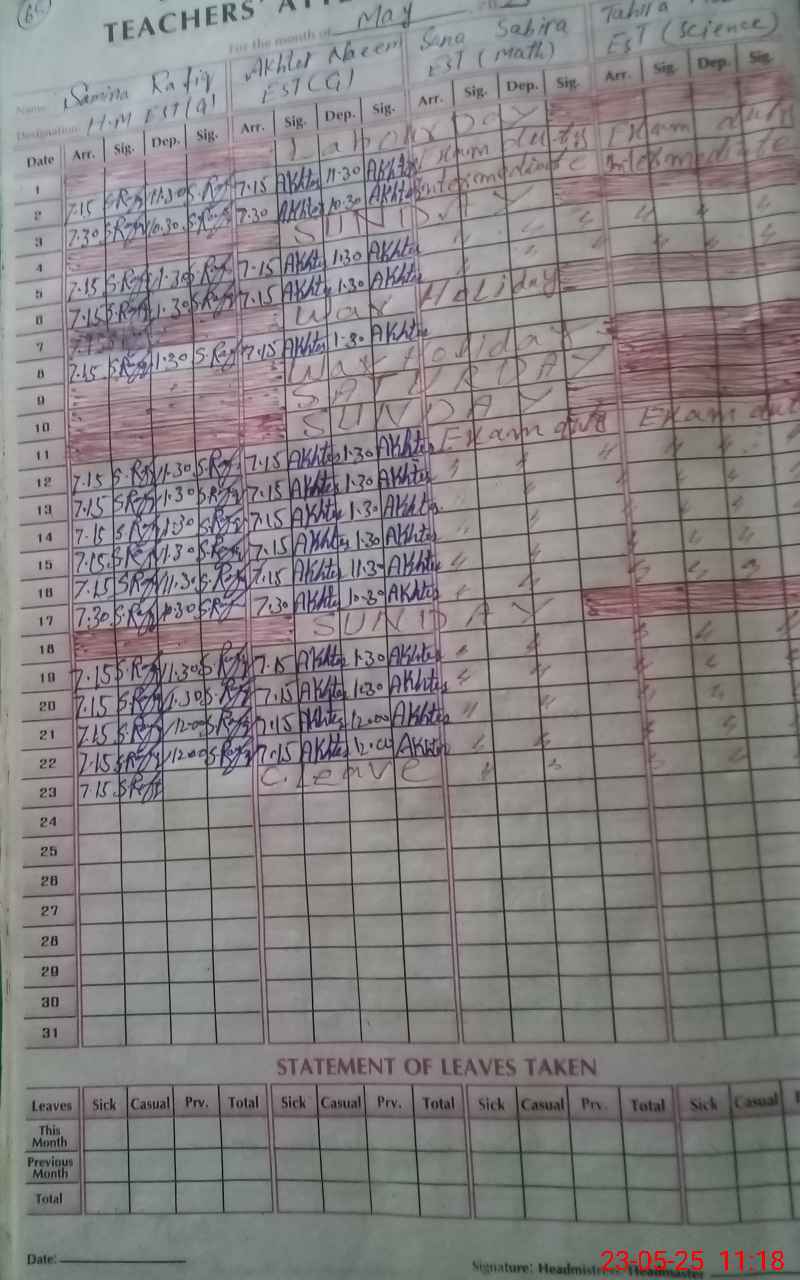 TEACHERS' ATT
For the month of May
Name Samina Rafiq Akhter Naeem Sana Sabira Tahira
Designation H.M EST(G) EST(G) EST (Math) EST (Science)
Date Arr. Sig. Dep. Sig. Arr. Sig. Dep. Sig. Arr. Sig. Dep. Sig. Arr. Sig. Dep. Sig.
1 Labour Day
2 7.15 S.Rafiq 11.30 S.Rafiq 7.15 Akhter 11.30 Akhter Exam duty Exam duty
3 7.30 S.Rafiq 10.30 S.Rafiq 7.30 Akhter 10.30 Akhter intermediate intermediate
4 SUNDAY
5 7.15 S.Rafiq 1.30 S.Rafiq 7.15 Akhter 1.30 Akhter " " " " " "
6 7.15 S.Rafiq 1.30 S.Rafiq 7.15 Akhter 1.30 Akhter " " " " "
7 War Holiday
8 7.15 S.Rafiq 1.30 S.Rafiq 7.15 Akhter 1.30 Akhter
9 War Holiday
10 SATURDAY
11 SUNDAY
12 7.15 S.Rafiq 1.30 S.Rafiq 7.15 Akhter 1.30 Akhter Exam duty Exam dut
13 7.15 S.Rafiq 1.30 S.Rafiq 7.15 Akhter 1.30 Akhter " " " " " "
14 7.15 S.Rafiq 1.30 S.Rafiq 7.15 Akhter 1.30 Akhter " " " " "
15 7.15 S.Rafiq 1.30 S.Rafiq 7.15 Akhter 1.30 Akhter " " " " "
16 7.15 S.Rafiq 11.30 S.Rafiq 7.15 Akhter 11.30 Akhter " " " " "
17 7.30 S.Rafiq 10.30 S.Rafiq 7.30 Akhter 10.30 Akhter " " " " "
18 SUNDAY
19 7.15 S.Rafiq 1.30 S.Rafiq 7.15 Akhter 1.30 Akhter " " " " "
20 7.15 S.Rafiq 1.30 S.Rafiq 7.15 Akhter 1.30 Akhter " " " "
21 7.15 S.Rafiq 12.00 S.Rafiq 7.15 Akhter 12.00 Akhter " " " "
22 7.15 S.Rafiq 12.00 S.Rafiq 7.15 Akhter 12.00 Akhter " " " "
23 7.15 S.Rafiq C.leave " " " "
24
25
26
27
28
29
30
31
STATEMENT OF LEAVES TAKEN
Leaves Sick Casual Prv. Total Sick Casual Prv. Total Sick Casual Prv. Total Sick Casual
This Month
Previous Month
Total
Date:
Signature: Headmistress/Headmaster
23-05-25 11:18